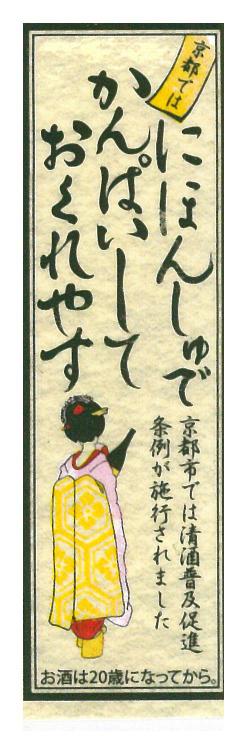 京都では
にほんしゅで
かんぱいして
おくれやす
京都市では清酒普及促進
条例が施行されました
お酒は20歳になってから。